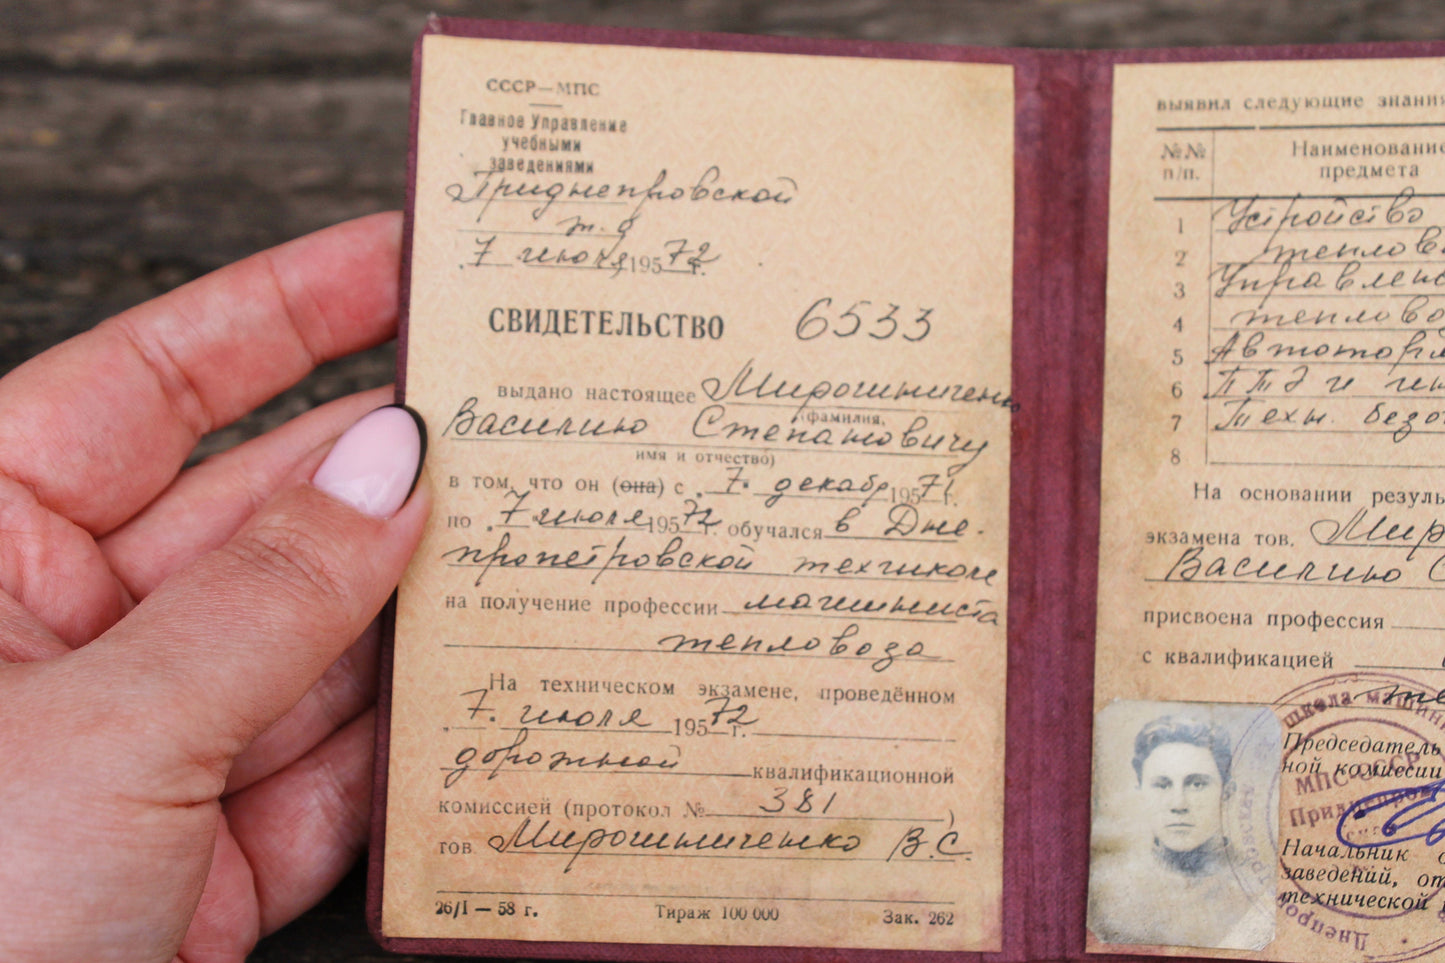 СССР—МПС
Главное Управление
учебными
заведениями
Приднепровской
ж. д
7 июля 19572 г.
СВИДЕТЕЛЬСТВО 6533
выдано настоящее Мирошниченко
(фамилия,
Василию Степановичу
имя и отчество)
в том, что он (она) с 7. декабр 19571 г.
по 7 июля 19572 г. обучался в Дне-
пропетровской техшколе
на получение профессии машиниста
тепловоза
На техническом экзамене, проведённом
7. июля 19572 г.
дорожной квалификационной
комиссией (протокол № 381 )
тов Мирошниченко В.С.
26/I — 58 г. Тираж 100 000 Зак. 262
выявил следующие знания
№№ п/п. Наименование предмета
1 Устройство
2 теплов
3 Управлени
4 теплово
5 Автоторм
6 ПТЭ и ин
7 Техн. безо
8
На основании резуль
экзамена тов. Мир
Василию С
присвоена профессия
с квалификацией
те
школа машин
Председатель
ной комиссии
МПС-СССР
Приднепров
Начальник
заведений, от
технической
Днепро